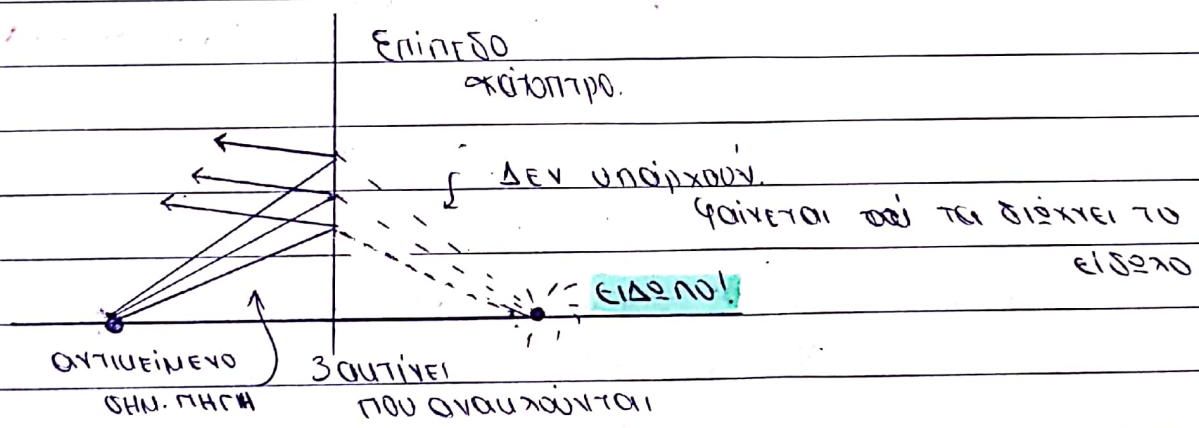 Επίπεδο
κάτοπτρο.
Δεν υπάρχουν.
Φαίνεται τα διώχνει το
είδωλο
ΕΙΔΩΛΟ!
αντικείμενο
σημ. πηγή
3 ακτίνες
που ανακλούνται